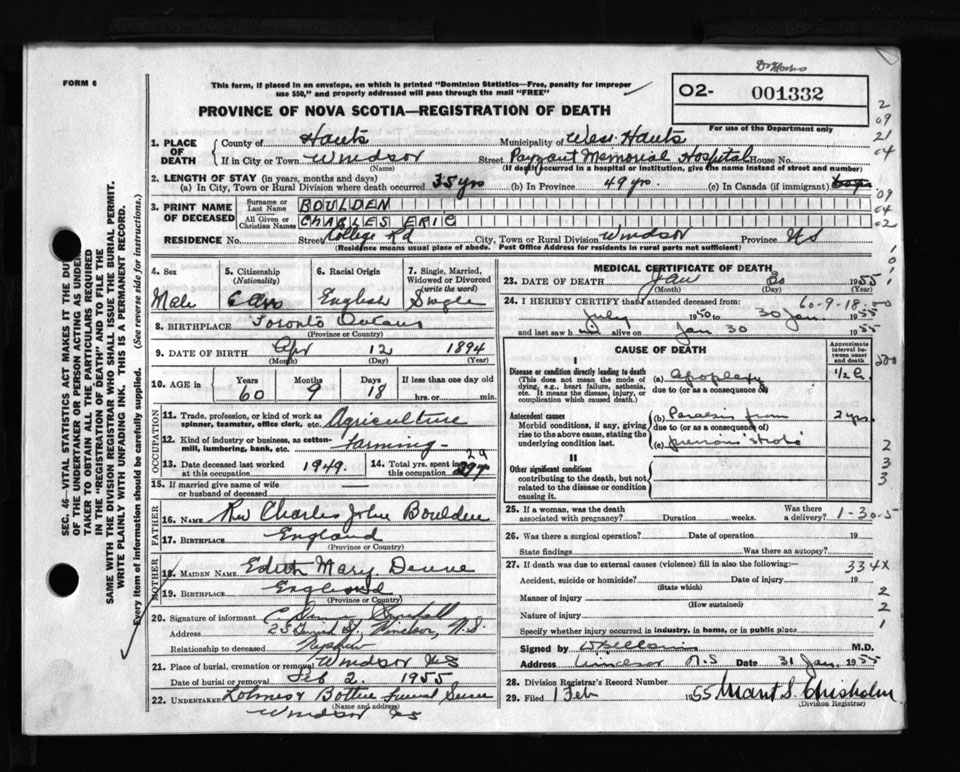 FORM 6
This form, if placed in an envelope, on which is printed "Dominion Statistics—Free, penalty for improper
use $50," and properly addressed will pass through the mail "FREE"
PROVINCE OF NOVA SCOTIA—REGISTRATION OF DEATH
O2- 001332
For use of the Department only
2
09
21
04
09
04
02
1. PLACE OF DEATH
County of Hants Municipality of West Hants
If in City or Town Windsor Street Payzant Memorial Hospital House No.
(Name) (If death occurred in a hospital or institution, give the name instead of street and number)
2. LENGTH OF STAY (in years, months and days)
(a) In City, Town or Rural Division where death occurred 35 yrs (b) In Province 49 yrs. (c) In Canada (if immigrant)
3. PRINT NAME OF DECEASED
Surname or Last Name BOULDEN
All Given or Christian Names CHARLES ERIC
RESIDENCE No. Street College Rd City, Town or Rural Division Windsor Province NS
(Residence means usual place of abode. Post Office Address for residents in rural parts not sufficient)
4. Sex Male
5. Citizenship (Nationality) Can
6. Racial Origin English
7. Single, Married, Widowed or Divorced (write the word) Single
8. BIRTHPLACE Toronto
9. DATE OF BIRTH Apr 12 1894
(Month) (Day) (Year)
10. AGE in Years 60 Months 9 Days 18 If less than one day old hrs. or min.
OCCUPATION
11. Trade, profession, or kind of work as spinner, teamster, office clerk, etc. Agriculture
12. Kind of industry or business, as cotton-mill, lumbering, bank, etc. Farming
13. Date deceased last worked at this occupation 1949. 14. Total yrs. spent in this occupation 29
15. If married give name of wife or husband of deceased
FATHER
16. NAME Rev Charles John Boulden
17. BIRTHPLACE England
(Province or Country)
MOTHER
18. MAIDEN NAME Edith Mary
19. BIRTHPLACE England
(Province or Country)
20. Signature of informant
Address Windsor, N.S
Relationship to deceased Nephew
21. Place of burial, cremation or removal Windsor NS
Date of burial or removal Feb 2. 1955
22. UNDERTAKER
(Name and address)
Windsor NS
MEDICAL CERTIFICATE OF DEATH
23. DATE OF DEATH Jan 30 1955
(Month) (Day) (Year)
24. I HEREBY CERTIFY that I attended deceased from: 60-9-18-00
July 1950 to 30 Jan. 1955
and last saw him alive on Jan 30 1955
CAUSE OF DEATH
Approximate interval between onset and death
I
Disease or condition directly leading to death
(This does not mean the mode of dying, e.g., heart failure, asthenia, etc. It means the disease, injury, or complication which caused death.)
(a) Apoplexy ½ h.
due to (or as a consequence of)
Antecedent causes
Morbid conditions, if any, giving rise to the above cause, stating the underlying condition last.
(b) Paralysis from 2 yrs.
due to (or as a consequence of)
(c) previous stroke
II
Other significant conditions
contributing to the death, but not related to the disease or condition causing it.
2
3
3
25. If a woman, was the death associated with pregnancy? Duration weeks. Was there a delivery? 1-30-5
26. Was there a surgical operation? Date of operation 19
State findings Was there an autopsy?
27. If death was due to external causes (violence) fill in also the following:— 334X
Accident, suicide or homicide? Date of injury 19
(State which)
Manner of injury 2
(How sustained)
Nature of injury 2
Specify whether injury occurred in industry, in home, or in public place 1
Signed by M.D.
Address Windsor N.S Date 31 Jan. 1955
28. Division Registrar's Record Number
29. Filed 1 Feb 1955 Chisholm
(Division Registrar)
SEC. 46—VITAL STATISTICS ACT MAKES IT THE DUTY
OF THE UNDERTAKER OR PERSON ACTING AS UNDER-
TAKER TO OBTAIN ALL THE PARTICULARS REQUIRED
IN THE "REGISTRATION OF DEATH" AND TO FILE THE
SAME WITH THE DIVISION REGISTRAR WHO SHALL ISSUE THE BURIAL PERMIT.
WRITE PLAINLY WITH UNFADING INK. THIS IS A PERMANENT RECORD.
Every item of information should be carefully supplied. (See reverse side for instructions.)